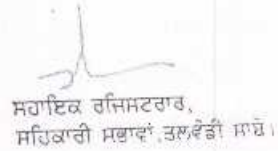 ਸਹਾਇਕ ਰਜਿਸਟਰਾਰ,
ਸਹਿਕਾਰੀ ਸਭਾਵਾਂ,ਤਲਵੰਡੀ ਸਾਬੋ।